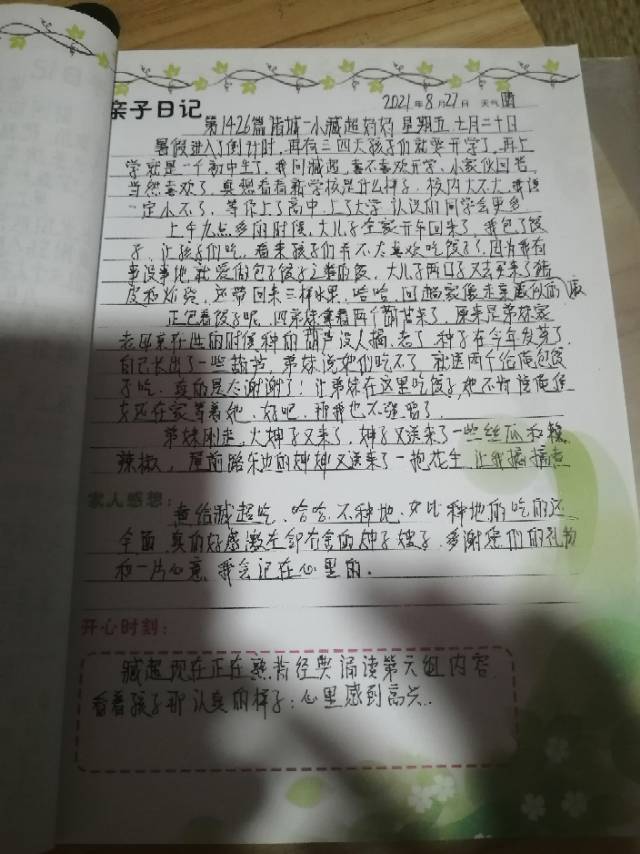 亲子日记
2021年8月27日 天气 晴
第1426篇 诸城一小臧超妈妈 星期五 七月二十日
暑假进入了倒计时,再有三四天孩子们就要开学了,再上
学就是一个初中生了,我问臧超,喜不喜欢开学,小家伙回答,
当然喜欢了,真想看看新学校是什么样子,校内大不大,我说
一定小不了,等你上了高中,上了大学,认识的同学会更多
上午九点多的时候,大儿子全家开车回来了,我包了饺
子,让孩子们吃,看来孩子们并不太喜欢吃饺子了,因为我有
事没事地就爱包饺子之类的饭,大儿子两口子又去买来了猪
皮和炉烧,还带回来三样水果,哈哈,回趟家像走亲戚似的
正包着饺子呢,四弟妹拿着两个葫芦来了,原来是弟妹家
老母亲在世的时候种的葫芦没人摘,老了,种子在今年发芽了,
自己长出了一些葫芦,弟妹说她们吃不了,就送两个给俺包饺
子吃,真的是太谢谢了!让弟妹在这里吃饺子,她不肯
在家等着她,好吧,那我也不强留了。
弟妹刚走,大婶子又来了,婶子又送来了一些丝瓜和辣
辣椒,屋前路东边的婶婶又送来了一抱花生,让我摘摘煮
家人感想:
煮给臧超吃,哈哈,不种地,又比种地的吃的还
全面,真的好感激左邻右舍的婶子嫂子,多谢您们的礼物
和一片心意,我会记在心里的。
开心时刻:
臧超现在正在熟背经典诵读第六组内容
看着孩子那认真的样子:心里感到高兴.